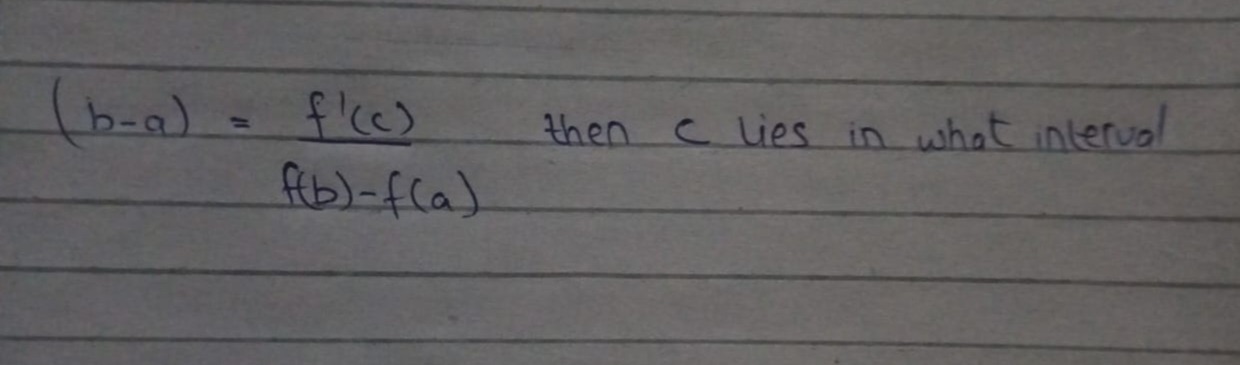 (b-a) = f'(c) then c lies in what interval
f(b)-f(a)